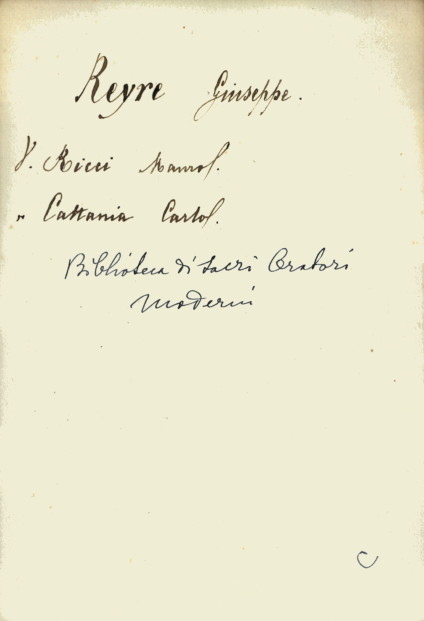 Reyre Giuseppe.
V. Ricci Maurol.
" Cattania Carlol.
Biblioteca di sacri Oratori
moderni
C